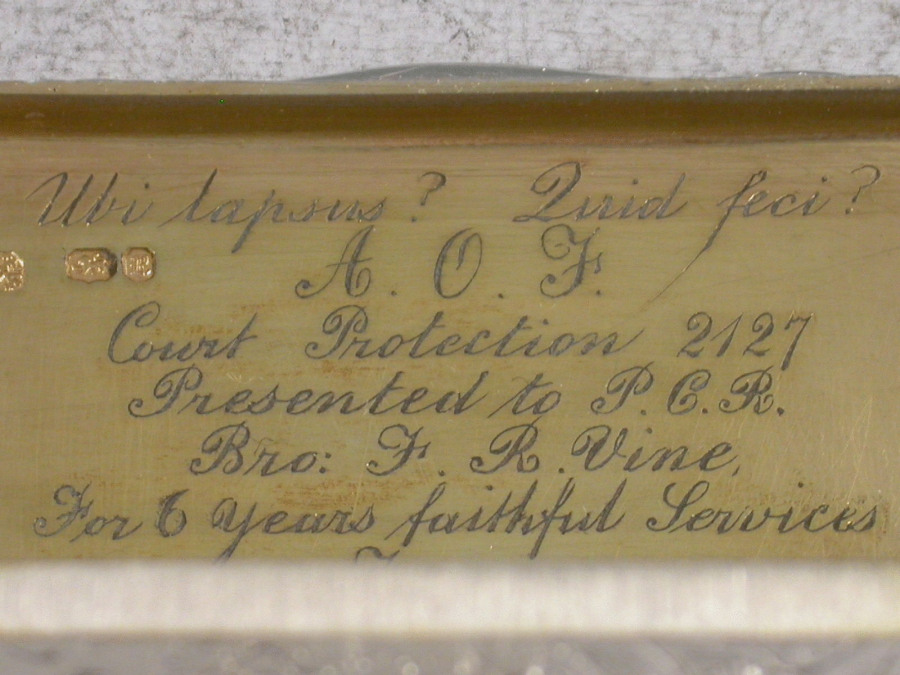 Ubi lapsus? Quid feci?
A. O. F.
Court Protection 2127
Presented to P. C. R.
Bro: F. R. Vine,
For 6 years faithful Services